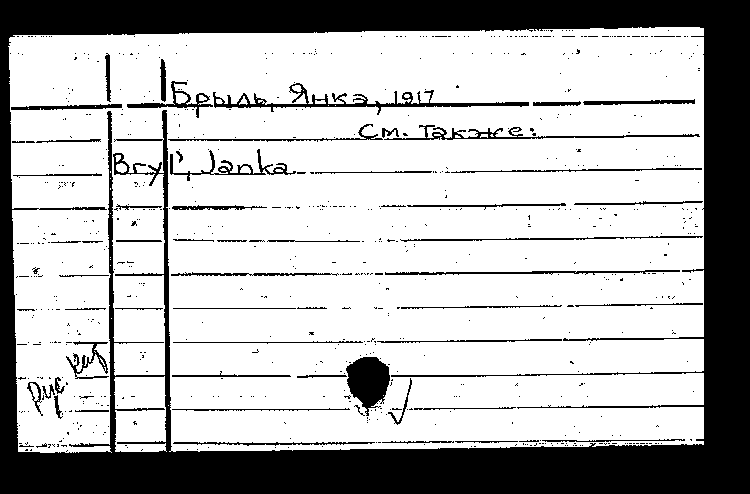 Брыль, Янка, 1917
См. также:
Bryl', Janka
Рус. каз